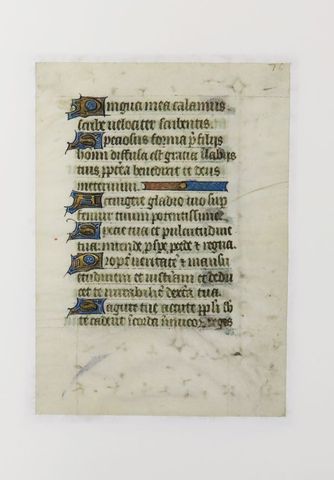 76
Lingua mea calamus
scribe velociter scribentis.
Speciosus forma p̄ filijs
homī diffusa est gratia ī labijs
tuis ꝓpt̄ea benedixit te deus
in eternum.
Accingere gladio tuo sup̄
femur tuum potentissime
Specie tua et pulcritudine
tua intende ꝓspe ꝓcede et regna.
Propt̄ veritatē et mansu
etudinem et iusticiam et dedu
cet te mirabilit̄ dext̄a tua.
Sagitte tue acute ppl̄i sub
te cadent ī corda inimicoꝝ reges